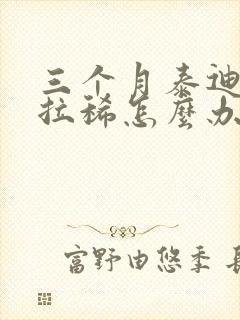 三个月泰迪
拉稀怎麼办
富野由悠季 長